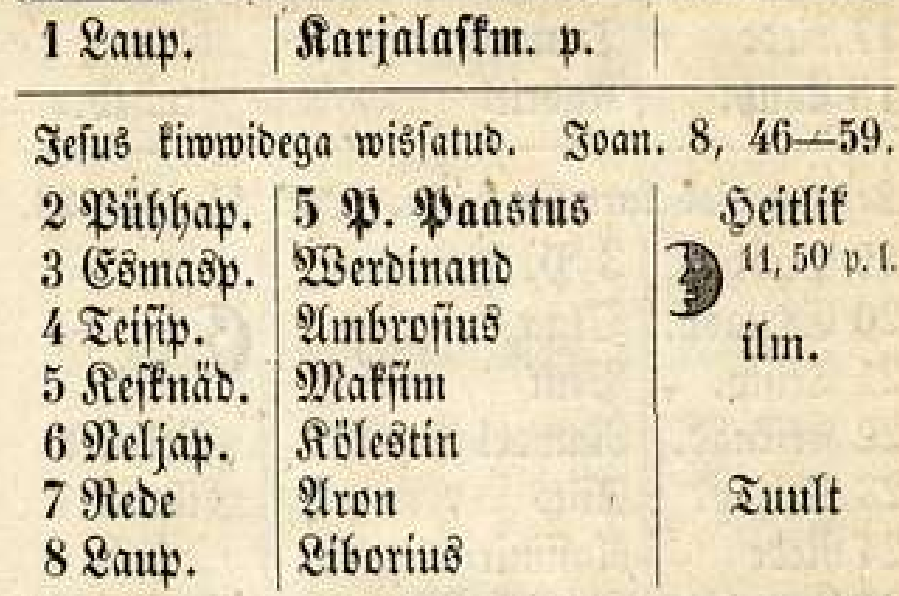 1 Laup. Karjalaskm. p.
Jesus kiwwidega wissatud. Joan. 8, 46—59.
2 Pühhap. 5 P. Paastus Heitlik
3 Esmasp. Werdinand 11, 50' p. l.
4 Teisip. Ambrosius ilm.
5 Kesknäd. Maksim
6 Neljap. Kölestin
7 Rede Aron Tuult
8 Laup. Liborius